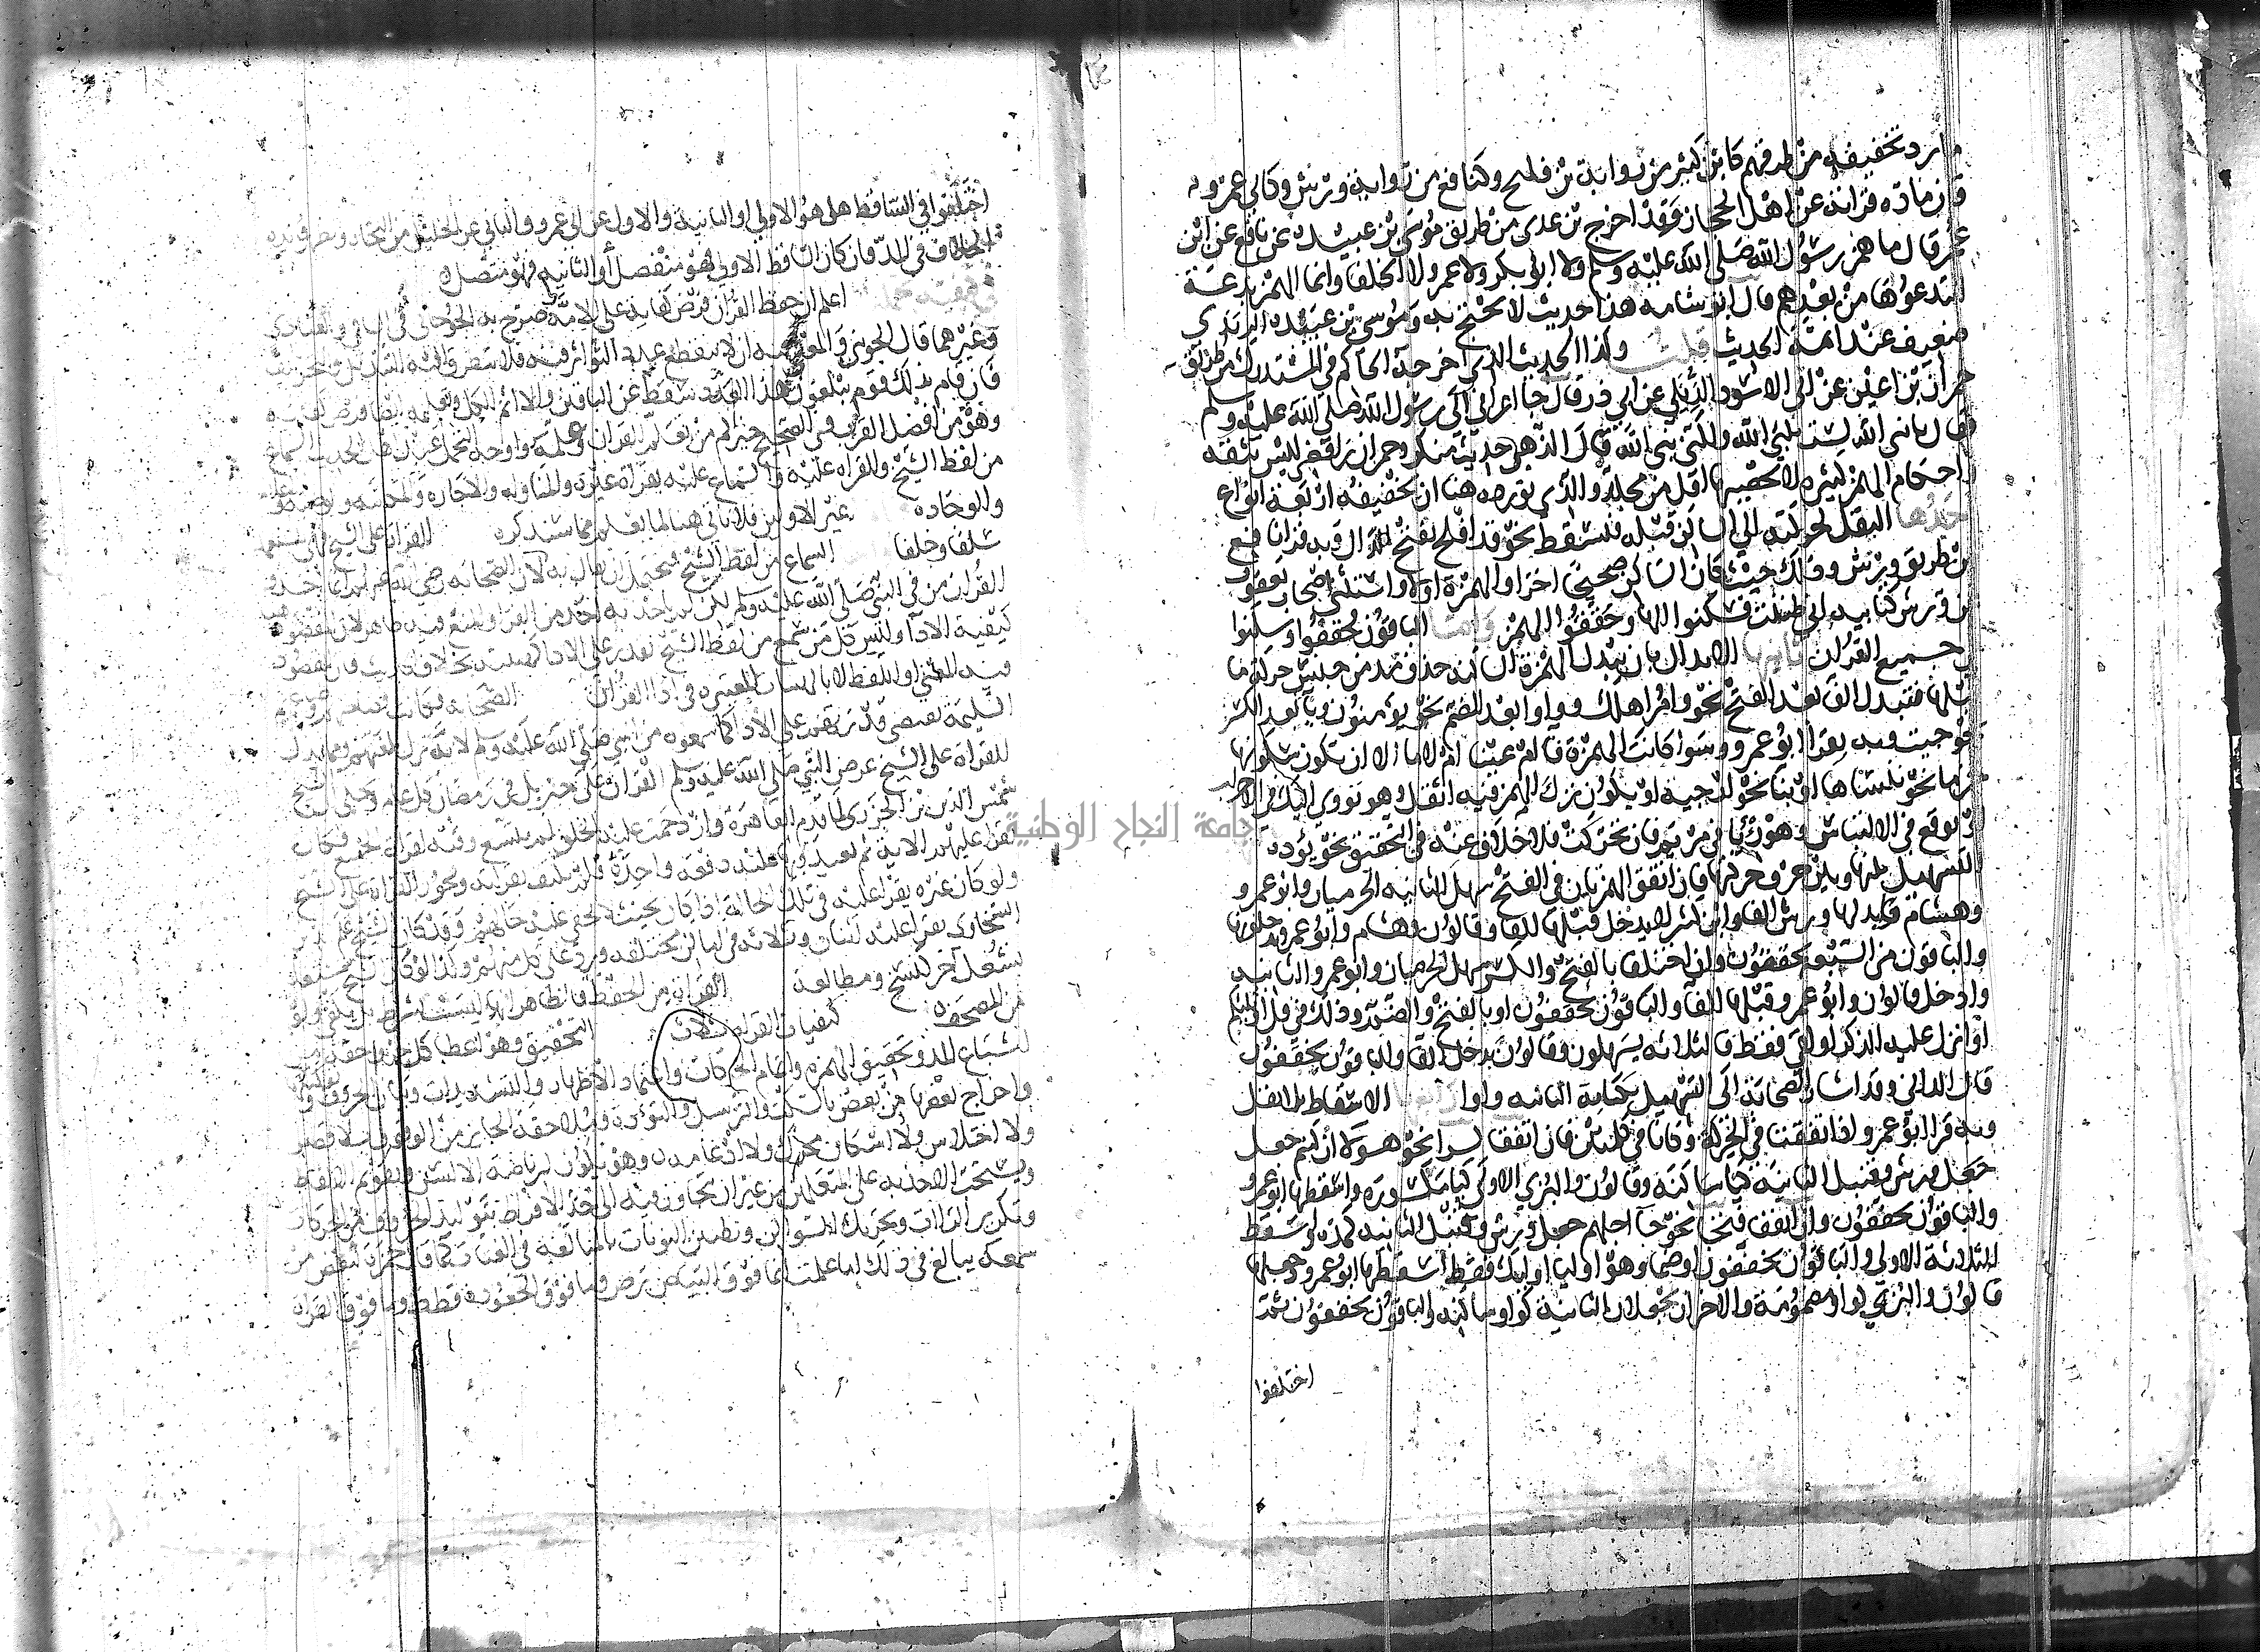 ما يرد تخفيفه من طرقهم كابن كثير من رواية بن فليح وكنافع من رواية ورش وكابي عمرو
فان مادة قراته عن اهل الحجاز وقد اخرج بن عدى من طريق موسى بن عبيدة عن نافع عن ابن
عمر قال ما همز رسول الله صلى الله عليه وسلم ولا ابو بكر ولا عمر ولا الخلفا وانما الهمز بدعة
ابتدعوها من بعدهم قال ابو شامه هذا حديث لا يحتج به وموسى بن عبيدة الربذي
ضعيف عند ائمة الحديث قلت وكذا الحديث الذي اخرجه الحاكم في المستدرك من طريق
حمران بن اعين عن ابي الاسود الدئلي عن ابي ذر قال جا اعرابي الى رسول الله صلى الله عليه وسلم
فقال يا نبي الله لست بنبي الله ولكني نبي الله قال الذهبي حديث منكر وحمران رافضي ليس بثقة
واحكام الهمز كثيره لا يحصيها اقل من مجلد والذي نورده هنا ان تخفيفه اربعة انواع
احدها النقل لحركته الى الساكن قبله فيسقط نحو قد افلح بفتح الدال وبه قرا نافع
من طريق ورش وذلك حيث كان الساكن صحيحا اخرا والهمزة اولا واستثنى اصحاب يعقوب
عن ورش كتابيه اني ظننت فسكنوا الها وحققوا الهمز واما الباقون فحققوا وسكنوا
في جميع القران ثانيها الابدال بان تبدل الهمزة الساكنة حرف مد من جنس حركة ما
قبلها فتبدل الفا بعد الفتح نحو وامر اهلك وواوا بعد الضم نحو يؤمنون ويا بعد الكسر
نحو جيت وبه يقرا ابو عمرو وسوا كانت الهمزة فا ام عينا ام لاما الا ان تكون سكونها
جزما نحو ننساها او بنا نحو ارجيه او يكون ترك الهمز فيه اثقل وهو تووي اليك في الاحزاب
او يوقع في الالتباس وهو رئيا في مريم فان تحركت فلا خلاف عنه في التحقيق نحو يؤده
التسهيل بينها وبين حرف حركتها فان اتفق الهمزتان في الفتح سهل الثانيه الحرميان وابو عمرو
وهشام وابدلها ورش الفا وابن كثير لا يدخل قبلها الفا وقالون وهشام وابو عمرو يدخلونها
والباقون من السبعة يحققون وان اختلفا بالفتح والكسر سهل الحرميان وابو عمرو الثانيه
وادخل قالون وابو عمرو قبلها الفا والباقون يحققون او بالفتح والضم وذلك في قل اؤنبئكم
اؤانزل عليه الذكر اؤلقي فقط فالثلاثه يسهلون وقالون يدخل الفا والباقون يحققون
قال الداني وقد اشار الصحابة الى التسهيل بكتابة الثانيه واوا رابعها الاسقاط بلا نقل
وبه قرا ابو عمرو اذا اتفقتا في الحركة وكانا في كلمتين فان اتفقا كسرا نحو هولا ان كنتم جعل
جعل ورش وقنبل الثانيه كيا ساكنه وقالون والبزي الاولى كيا مكسوره واسقطها ابو عمرو
والباقون يحققون وان اتفقا فتحا نحو جا اجلهم جعل ورش وقنبل الثانيه كمدة واسقط
الثلاثة الاولى والباقون يحققون او ضما وهو اوليا اوليك فقط اسقطها ابو عمرو وجعلها
قالون والبزي كواو مضمومة والاخران يجعلان الثانية كواو ساكنه والباقون يحققون ثم
اختلفوا
اختلفوا في الساقط هل هو الاولى او الثانية والاول عن ابي عمرو والثاني عن الخليل من النحاه وتظهر فايدة
الخلاف في المد فان كان الساقط الاولى فهو منفصل او الثانيه فهو متصل
اعلم ان حفظ القران فرض كفاية على الامة صرح به الجرجاني في الشافي والعبادي
وغيرهما قال الجويني والمعنى فيه ان لا ينقطع عدد التواتر فيه فلا يتطرق اليه التبديل والتحريف
فان قام بذلك قوم يبلغون هذا العدد سقط عن الباقين والا اثم الكل وتعليمه ايضا فرض كفايه
وهو من افضل القرب ففي الصحيح خيركم من تعلم القران وعلمه واوجه التحمل عند اهل الحديث السماع
من لفظ الشيخ والقراه عليه والسماع عليه بقراة غيره والمناوله والاجازه والمكاتبه والوصيه والاعلام
والوجاده غير الاولين فلا ياتي هنا لما يعلم مما سنذكره القراة على الشيخ فهي المستعملة
سلفا وخلفا السماع من لفظ الشيخ فيحتمل ان يقال به لان الصحابه رضي الله عنهم انما اخذوا
القران من في النبي صلى الله عليه وسلم لكن لم ياخذ به احد من القرا والمنع فيه ظاهر لان المقصود
كيفية الادا وليس كل من سمع من لفظ الشيخ يقدر على الادا كهيئته بخلاف الحديث فان المقصود
فيه المعنى او اللفظ لا بالهيات المعتبره في ادا القران الصحابه فكانت فصاحتهم وطباعهم
السليمة تقتضي قدرتهم على الادا كما سمعوه من النبي صلى الله عليه وسلم لانه نزل بلغتهم ومما يدل
للقراة على الشيخ عرض النبي صلى الله عليه وسلم القران على جبريل في رمضان كل عام وحكي ان الشيخ
شمس الدين بن الجزري لما قدم القاهرة وازدحمت عليه الخلق لم يتسع وقته لقراة الجميع فكان
يقرا عليهم الايه ثم يعيدونها عليه دفعة واحدة فلم يكتف بقراته وتجوز القراة على الشيخ
ولو كان غيره يقرا عليه في تلك الحالة اذا كان بحيث لا يخفى عليه حالهم وقد كان الشيخ علم الدين
السخاوي يقرا عليه اثنان وثلاثه في اماكن مختلفه ويرد على كل منهم وكذا لو كان الشيخ مشتغلا
بشغل اخر كنسخ ومطالعة القراة من الحفظ فالظاهر انها ليست بشرط بل يكفي ولو
من المصحف كيفيات القراة ثلاث التحقيق وهو اعطا كل حرف حقه من
اشباع المد وتحقيق الهمزه واتمام الحركات واعتماد الاظهار والتشديدات وبيان الحروف وتفكيكها
واخراج بعضها من بعض بالسكت والترسل والتؤدة وملاحظة الجايز من الوقوف بلا قصر
ولا اختلاس ولا اسكان محرك ولا ادغامه وهو يكون لرياضة الالسن وتقويم الالفاظ
ويستحب الاخذ به على المتعلمين من غير ان يتجاوز فيه الى حد الافراط بتوليد الحروف من الحركات
وتكرير الراات وتحريك السواكن وتطنين النونات بالمبالغة في الغنات كما قال حمزة لبعض من
سمعه يبالغ في ذلك اما علمت ان ما فوق البياض برص وما فوق الجعوده قطط وما فوق القراة
جامعة النجاح الوطنية